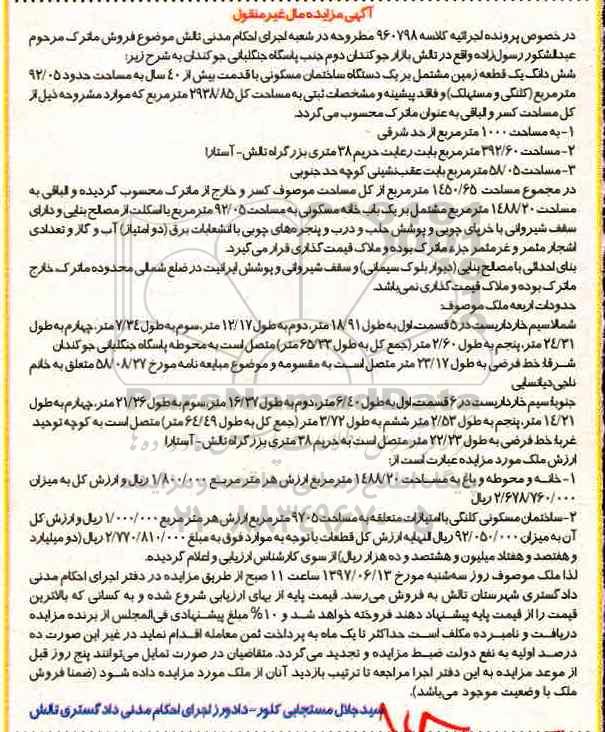 آگهی مزایده مال غیرمنقول
در خصوص پرونده اجرائیه کلاسه ۹۶۰۷۹۸ مطروحه در شعبه اجرای احکام مدنی تالش موضوع فروش ماترک مرحوم
عبدالشکور رسول‌زاده واقع در تالش بازار جوکندان دوم جنب پاسگاه جنگلبانی جوکندان به شرح زیر:
شش دانگ یک قطعه زمین مشتمل بر یک دستگاه ساختمان مسکونی با قدمت بیش از ۴۰ سال به مساحت حدود ۹۲/۰۵
مترمربع (کلنگی و مستهلک) و فاقد پیشینه و مشخصات ثبتی به مساحت کل ۲۹۳۸/۸۵ مترمربع که موارد مشروحه ذیل از
کل مساحت کسر و الباقی به عنوان ماترک محسوب می‌گردد.
۱- به مساحت ۱۰۰۰ مترمربع از حد شرقی
۲- مساحت ۳۹۲/۶۰ مترمربع بابت رعایت حریم ۳۸ متری بزرگراه تالش- آستارا
۳- مساحت ۵۸/۰۵ مترمربع بابت عقب‌نشینی کوچه حد جنوبی
در مجموع مساحت ۱۴۵۰/۶۵ مترمربع از کل مساحت موصوف کسر و خارج از ماترک محسوب گردیده و الباقی به
مساحت ۱۴۸۸/۲۰ مترمربع مشتمل بر یک باب خانه مسکونی به مساحت ۹۲/۰۵ مترمربع با اسکلت از مصالح بنایی و دارای
سقف شیروانی با خرپای چوبی و پوشش حلب و درب و پنجره‌های چوبی با انشعابات برق (دو امتیاز) آب و گاز و تعدادی
اشجار مثمر و غیرمثمر جزء ماترک بوده و ملاک قیمت گذاری قرار می‌گیرد.
بنای احداثی با مصالح بنایی (دیوار بلوک سیمانی) و سقف شیروانی و پوشش ایرانیت در ضلع شمالی محدوده ماترک خارج
ماترک بوده و ملاک قیمت گذاری نمی‌باشد.
حدودات اربعه ملک موصوف:
شمالا سیم خارداریست در ۵ قسمت، اول به طول ۱۸/۹۱ متر، دوم به طول ۱۲/۱۷ متر، سوم به طول ۷/۳۴ متر، چهارم به طول
۲۴/۳۱ متر، پنجم به طول ۲/۶۰ متر (جمع کل به طول ۶۵/۳۳ متر) متصل است به محوطه پاسگاه جنگلبانی جوکندان
شرقا: خط فرضی به طول ۲۳/۱۷ متر متصل است به مقسومه و موضوع مبایعه نامه مورخ ۵۸/۰۸/۲۷ متعلق به خانم
ناجی دیانسایی
جنوبا: سیم خارداریست در ۶ قسمت، اول به طول ۶/۴۰ متر، دوم به طول ۱۶/۳۷ متر، سوم به طول ۲۱/۲۶ متر، چهارم به طول
۱۴/۲۱ متر، پنجم به طول ۲/۵۳ متر ششم به طول ۳/۷۲ متر (جمع کل به طول ۶۴/۴۹ متر) متصل است به کوچه توحید
غربا: خط فرضی به طول ۲۲/۲۳ متر متصل است به حریم ۳۸ متری بزرگراه تالش- آستارا
ارزش ملک مورد مزایده عبارت است از:
۱- خانه و محوطه و باغ به مساحت ۱۴۸۸/۲۰ مترمربع ارزش هر متر مربع ۱/۸۰۰/۰۰۰ ریال و ارزش کل به میزان
۲/۶۷۸/۷۶۰/۰۰۰ ریال
۲- ساختمان مسکونی کلنگی با امتیازات متعلقه به مساحت ۹۲/۰۵ مترمربع ارزش هر متر مربع ۱/۰۰۰/۰۰۰ ریال و ارزش کل
آن به میزان ۹۲/۰۵۰/۰۰۰ ریال النهایه ارزش کل قطعات با توجه به موارد فوق به مبلغ ۲/۷۷۰/۸۱۰/۰۰۰ ریال (دو میلیارد
و هفتصد و هفتاد میلیون و هشتصد و ده هزار ریال) از سوی کارشناس ارزیابی و اعلام گردیده.
لذا ملک موصوف روز سه‌شنبه مورخ ۱۳۹۷/۰۶/۱۳ ساعت ۱۱ صبح از طریق مزایده در دفتر اجرای احکام مدنی
دادگستری شهرستان تالش به فروش می‌رسد. قیمت پایه از بهای ارزیابی شروع شده و به کسانی که بالاترین
قیمت را از قیمت پایه پیشنهاد دهند فروخته خواهد شد و ۱۰% مبلغ پیشنهادی فی‌المجلس از برنده مزایده
دریافت و نامبرده مکلف است حداکثر تا یک ماه به پرداخت ثمن معامله اقدام نماید در غیر این صورت ده
درصد اولیه به نفع دولت ضبط مزایده و تجدید می گردد. متقاضیان در صورت تمایل می‌توانند پنج روز قبل
از موعد مزایده به این دفتر اجرا مراجعه تا ترتیب بازدید آنان از ملک مورد مزایده داده شود (ضمنا فروش
ملک با وضعیت موجود می‌باشد).
سید جلال مستجابی کلور- دادورز اجرای احکام مدنی دادگستری تالش